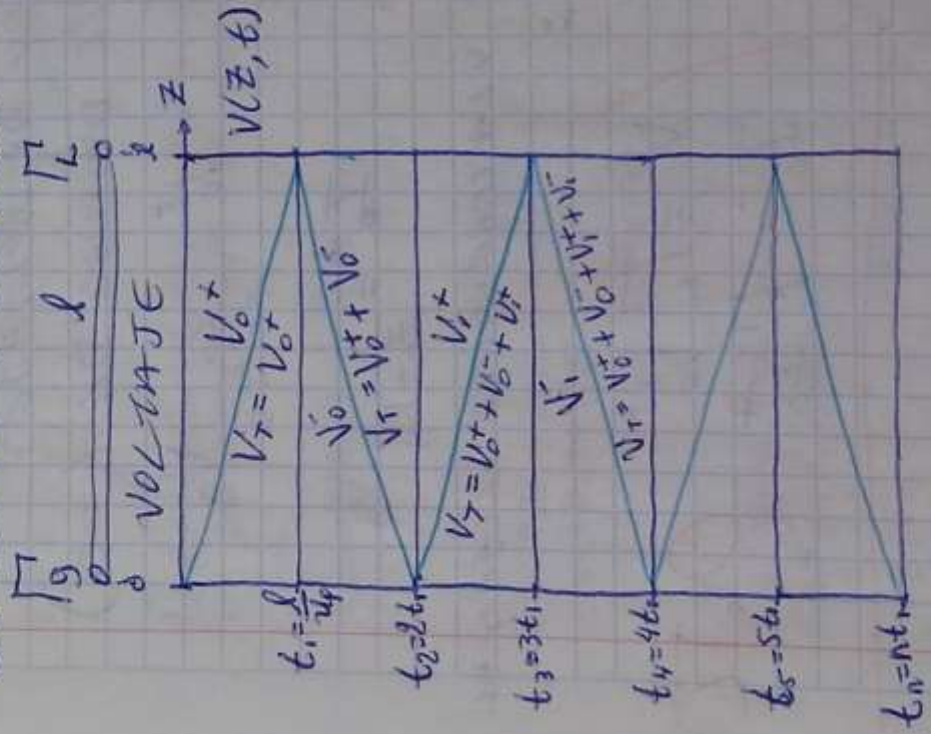 Γg l ΓL
0 l z
VOLTAJE V(z,t)
V0+
VT = V0+
t1 = l/up
V0-
VT = V0+ + V0-
t2 = 2t1
V1+
VT = V0+ + V0- + V1+
t3 = 3t1
V1-
VT = V0+ + V0- + V1+ + V1-
t4 = 4t1
t5 = 5t1
tn = nt1